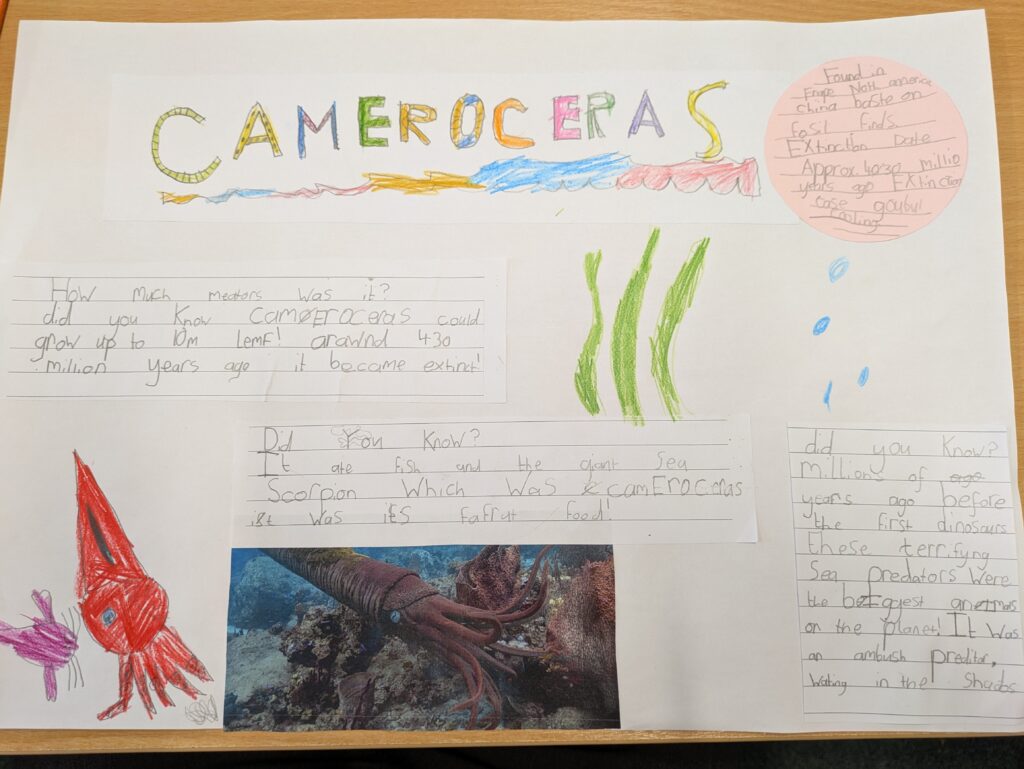 CAMEROCERAS
Found in
Erope Noth america
china baste on
fosil finds
EXtinction Date
Approx 4030 millio
years ago EXtinction
case goubul
cooling
How much meators was it?
did you Know camerOceras could
grow up to 10m lemf! arawnd 430
million years ago it became extinct!
Did You Know?
It ate fish and the giant Sea
Scorpion Which Was camEROceras
was its fafrut food!
did you Know?
millions of
years ago before
the first dinosaurs
these terrifyng
Sea predators Were
the beggest
on the planet! It Was
an ambush preditor,
Wating in the Shabos